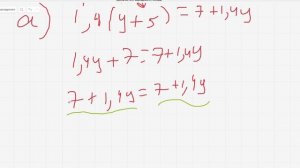 а) 1,4(y+5) = 7+1,4y
1,4y+7=7+1,4y
7+1,4y=7+1,4y